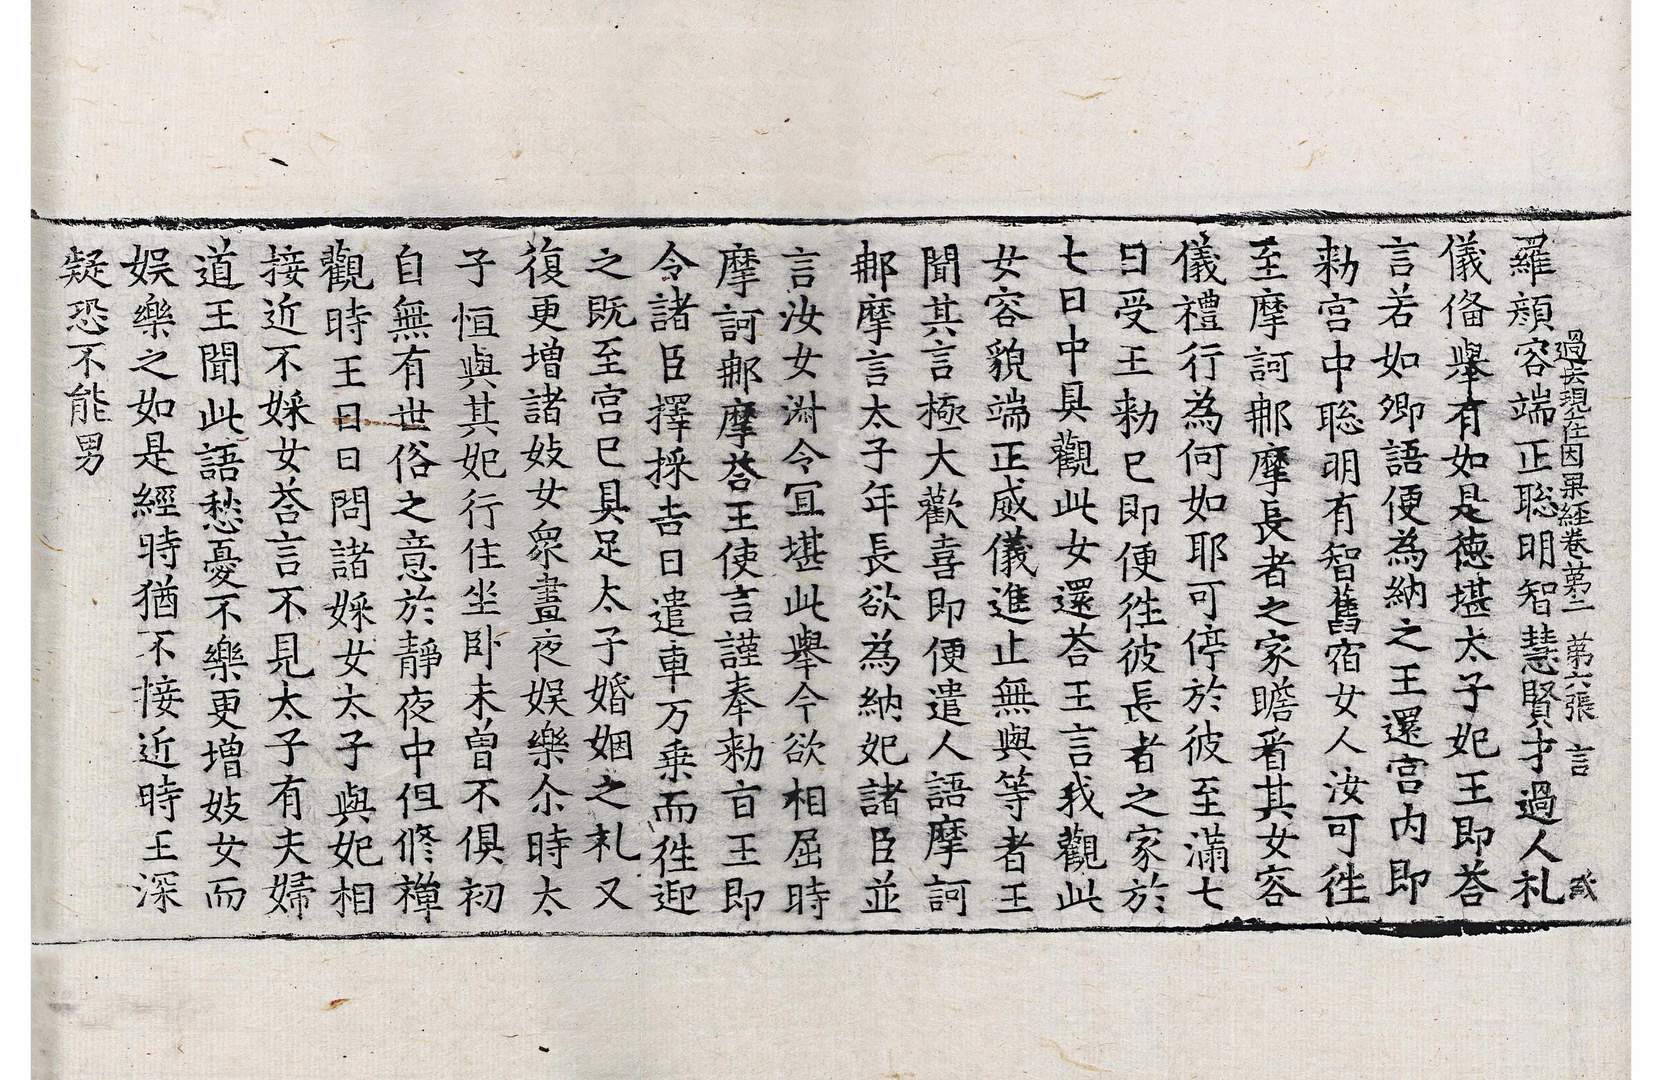 過去現在因果經卷第二　第六張　言　貳
羅顔容端正聡明智慧賢才過人礼
儀俻舉有如是德堪太子妃王即荅
言若如卿語便為納之王還宮内即
勑宮中聡明有智舊宿女人汝可徃
至摩訶郍摩長者之家瞻看其女容
儀禮行為何如耶可停於彼至滿七
日受王勑已即便徃彼長者之家於
七日中具觀此女還荅王言我觀此
女容貌端正威儀進止無與等者王
聞其言極大歡喜即便遣人語摩訶
郍摩言太子年長欲為納妃諸臣並
言汝女淑令宜堪此舉今欲相屈時
摩訶郍摩荅王使言謹奉勑旨王即
令諸臣擇採吉日遣車万乗而徃迎
之既至宮已具足太子婚姻之礼又
復更增諸妓女衆晝夜娯樂尒時太
子恒與其妃行住坐卧未曾不俱初
自無有世俗之意於靜夜中但修禪
觀時王日日問諸婇女太子與妃相
接近不婇女荅言不見太子有夫婦
道王聞此語愁憂不樂更增妓女而
娯樂之如是經時猶不接近時王深
疑恐不能男